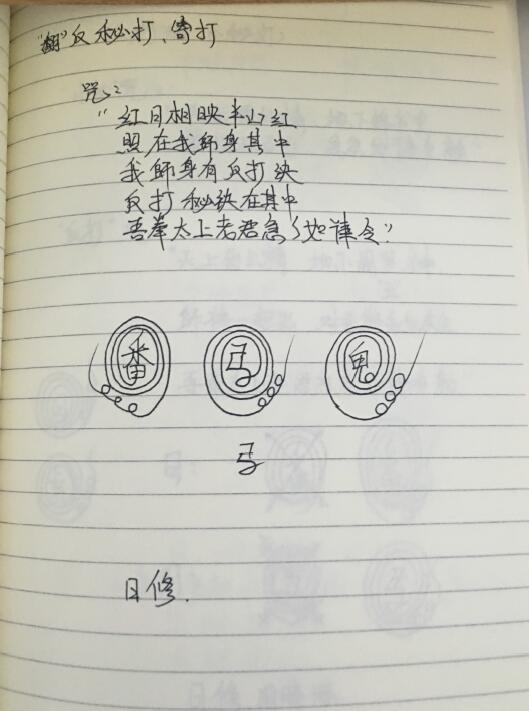 "翻"反秘打、寄打
咒:
"红日相映半山红
照在我师身其中
我师身有反打诀
反打秘诀在其中
吾奉太上老君急々如律令"
番 弓 鬼
弓
日修.